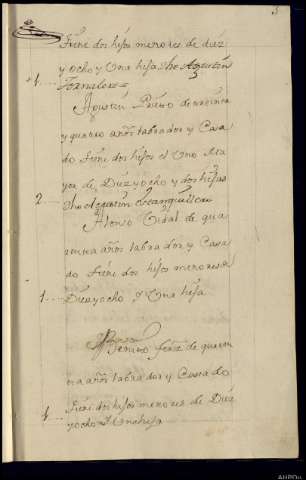 3
tiene dos hijos menores de diez
y ocho y Una hija
Agustin Prieto de treinta
y quatro años labrador y Casa
do tiene dos hijos el Uno Ma
yor de Diez yocho y dos hijas
2
Alonso Vidal de qua
renta años labrador y Casa
do tiene dos hijos menores de
1 Diez yocho y Una hija
Benito frnz de quaren
ta años labrador y Casado
1 tiene dos hijos menores de Diez
yocho y Una hija
AHPOu